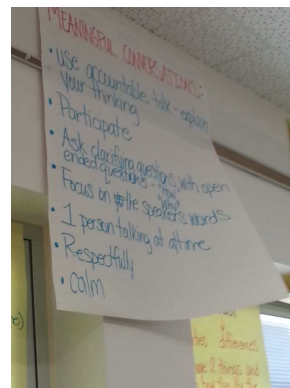 MEANINGFUL CONVERSATIONS:
• Use accountable talk - explain
your thinking
• Participate
• Ask clarifying questions with open
ended questions - How
Why
• Focus on the speaker's words
• 1 person talking at a time
• Respectfully
• Calm
differences
2 things and